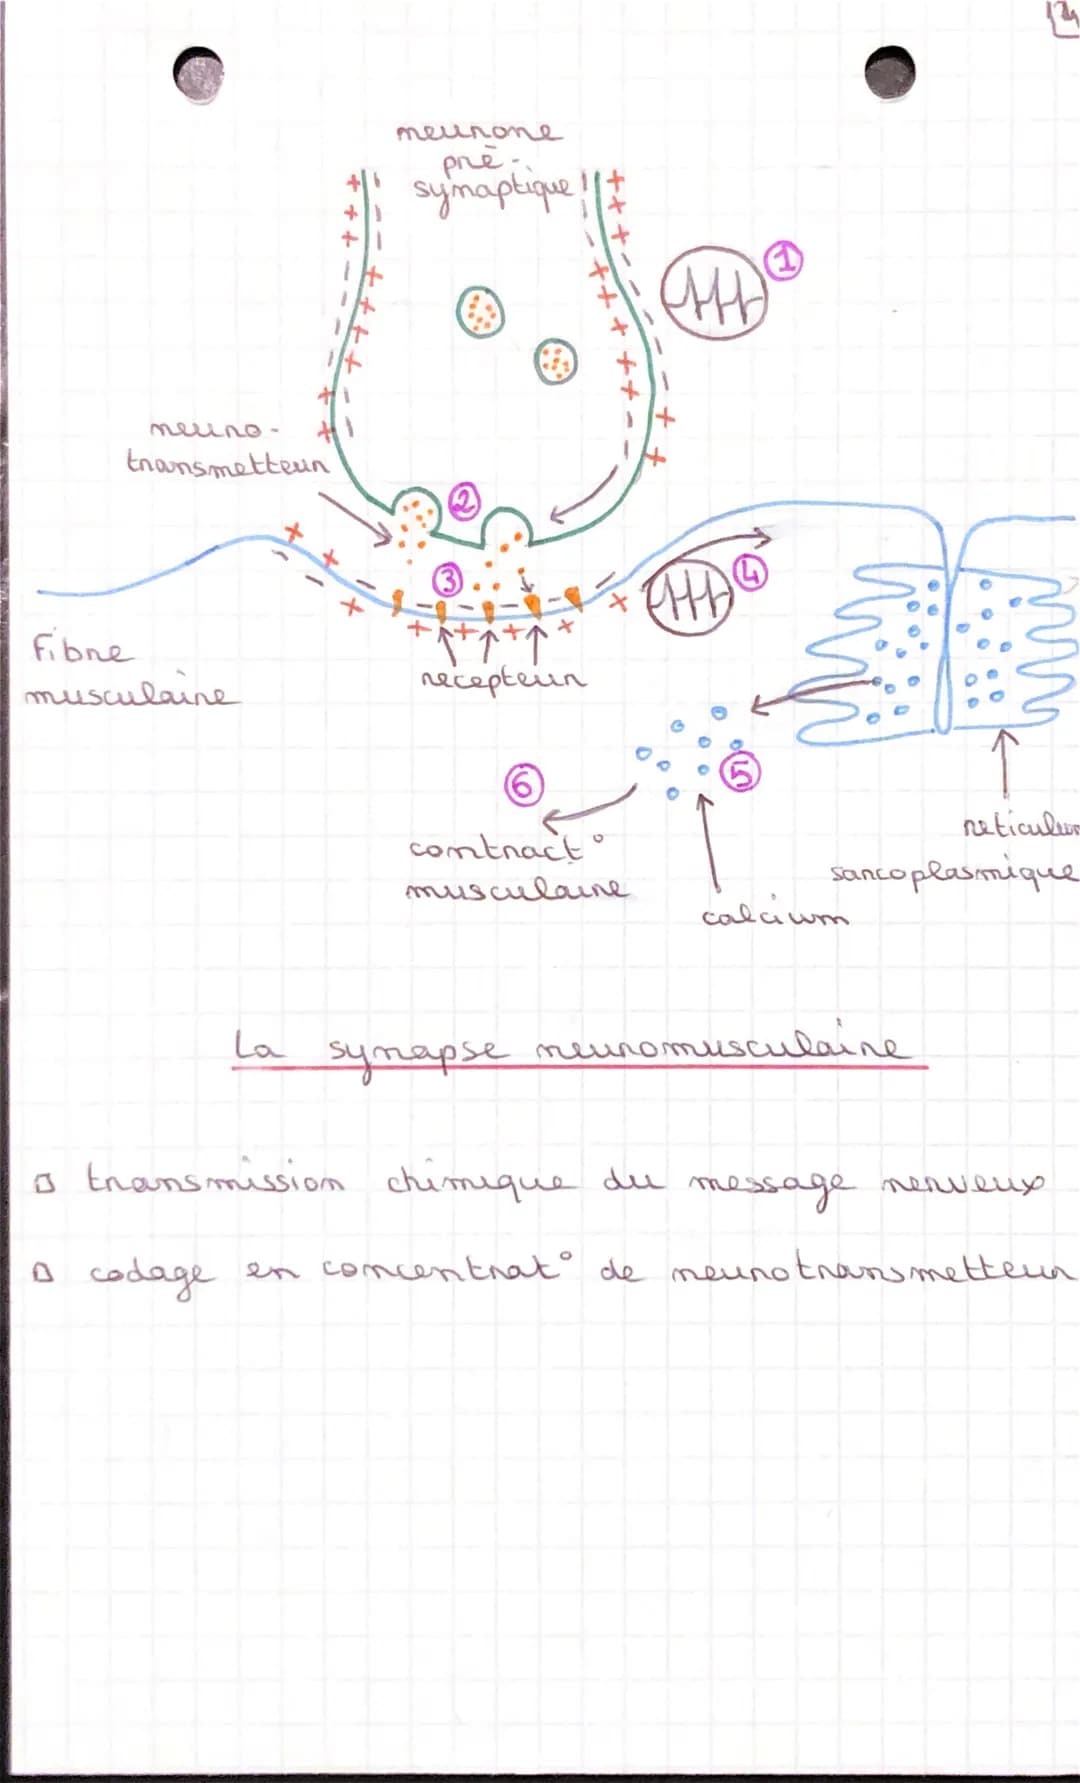 neurone
pré-
synaptique
1
neuro-
transmetteur
2
3
4
Fibre
musculaire
recepteur
5
6
contract°
musculaire
calcium
sarcoplasmique
La synapse neuromusculaire
transmission chimique du message nerveux
codage en concentrat° de neurotransmetteur